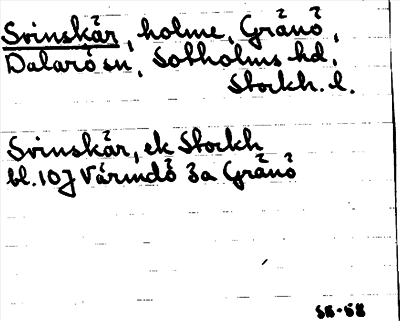 Svinskär, holme, Gränö,
Dalarö sn, Sotholms hd.
Stockh. l.
Svinskär, ek Stockh
bl. 10J Värmdö 3a Gränö
SR-58